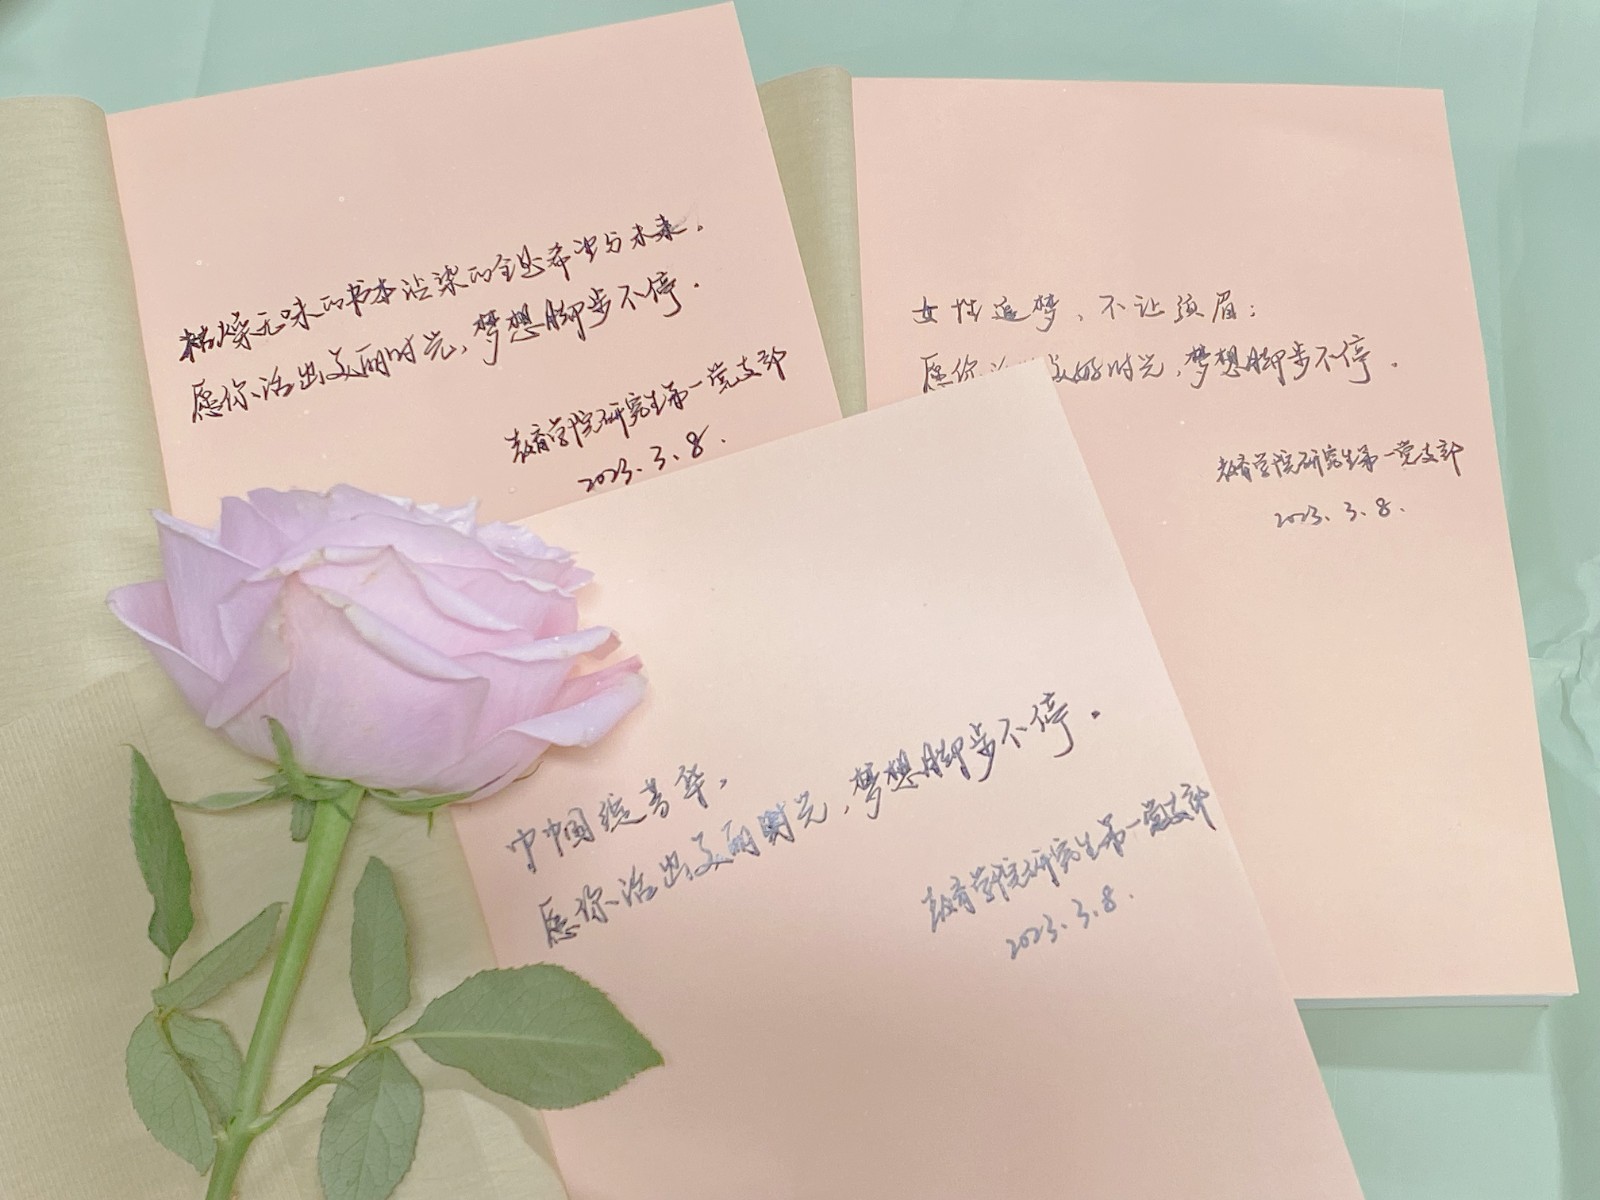 枯燥无味的书本沾染的全是希望与未来.
愿你活出美丽时光,梦想脚步不停.
教育学院研究生第一党支部
2023.3.8.
女性追梦、不让须眉;
愿你 美好时光,梦想脚步不停.
教育学院研究生第一党支部
2023.3.8.
巾帼绽芳华,
愿你活出美丽时光,梦想脚步不停.
教育学院研究生第一党支部
2023.3.8.